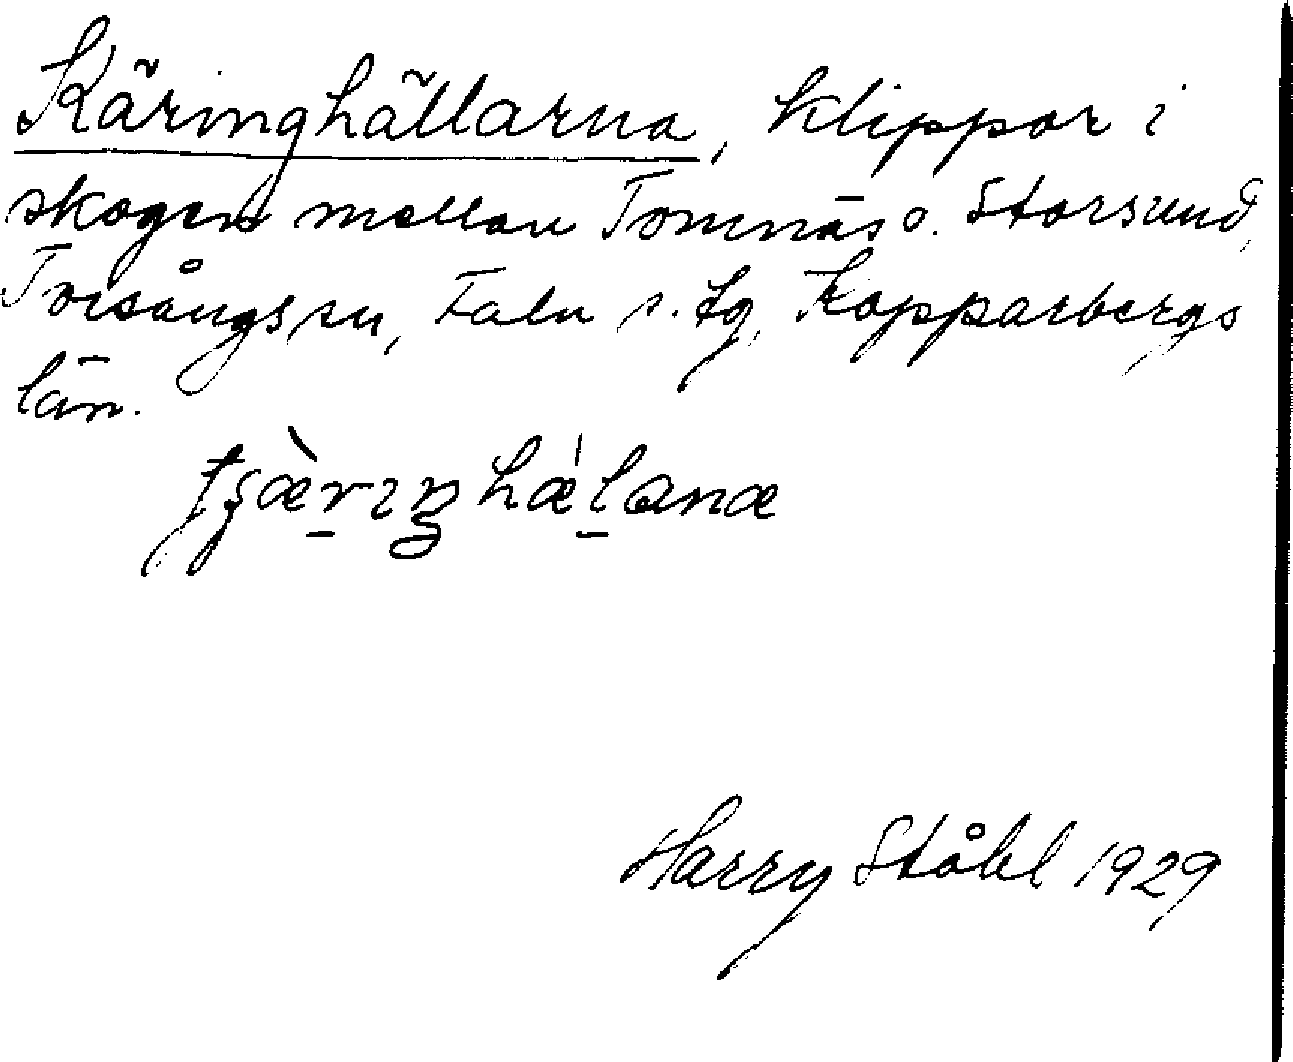 Käringhällarna, klippor i
skogen mellan Tomnäs o. Storsund,
Torsångs sn, Falu s. tg, Kopparbergs
län.
tʂæ̀rıŋhæ̀lanæ
Harry Ståhl 1929